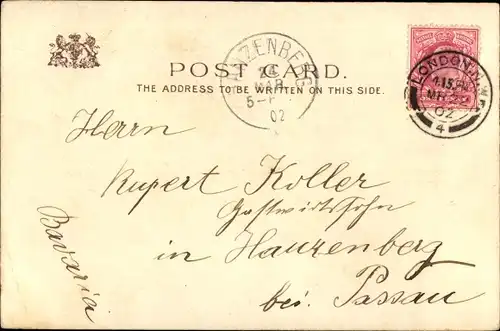 POST CARD.
THE ADDRESS TO BE WRITTEN ON THIS SIDE.
HAUZENBERG
24
MAR
5-
02
LONDON.N.W
4.15 PM
MR 22
02
4
Herrn
Rupert Koller
Gastwirtssohn
in Hauzenberg
bei Passau
Bavaria.